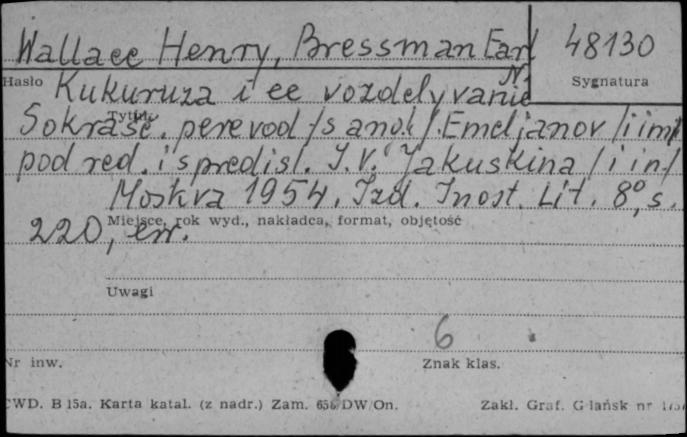 Wallace Henry, Bressman Earl N. 48130
Hasło
Sygnatura
Kukuruza i ee vozdelyvanie
Tytuł
Sokrašč. perevod /s angl./. Emeljanov /i inn/
pod red. i s predisl. I. V. Jakuskina /i in/
Moskva 1954. Izd. Inost. Lit. 8°, s.
Miejsce, rok wyd., nakładca, format, objętość
220, err.
Uwagi
6
Nr inw.
Znak klas.
CWD. B 15a. Karta katal. (z nadr.) Zam. DW/On. Zakł. Graf. Gdańsk nr